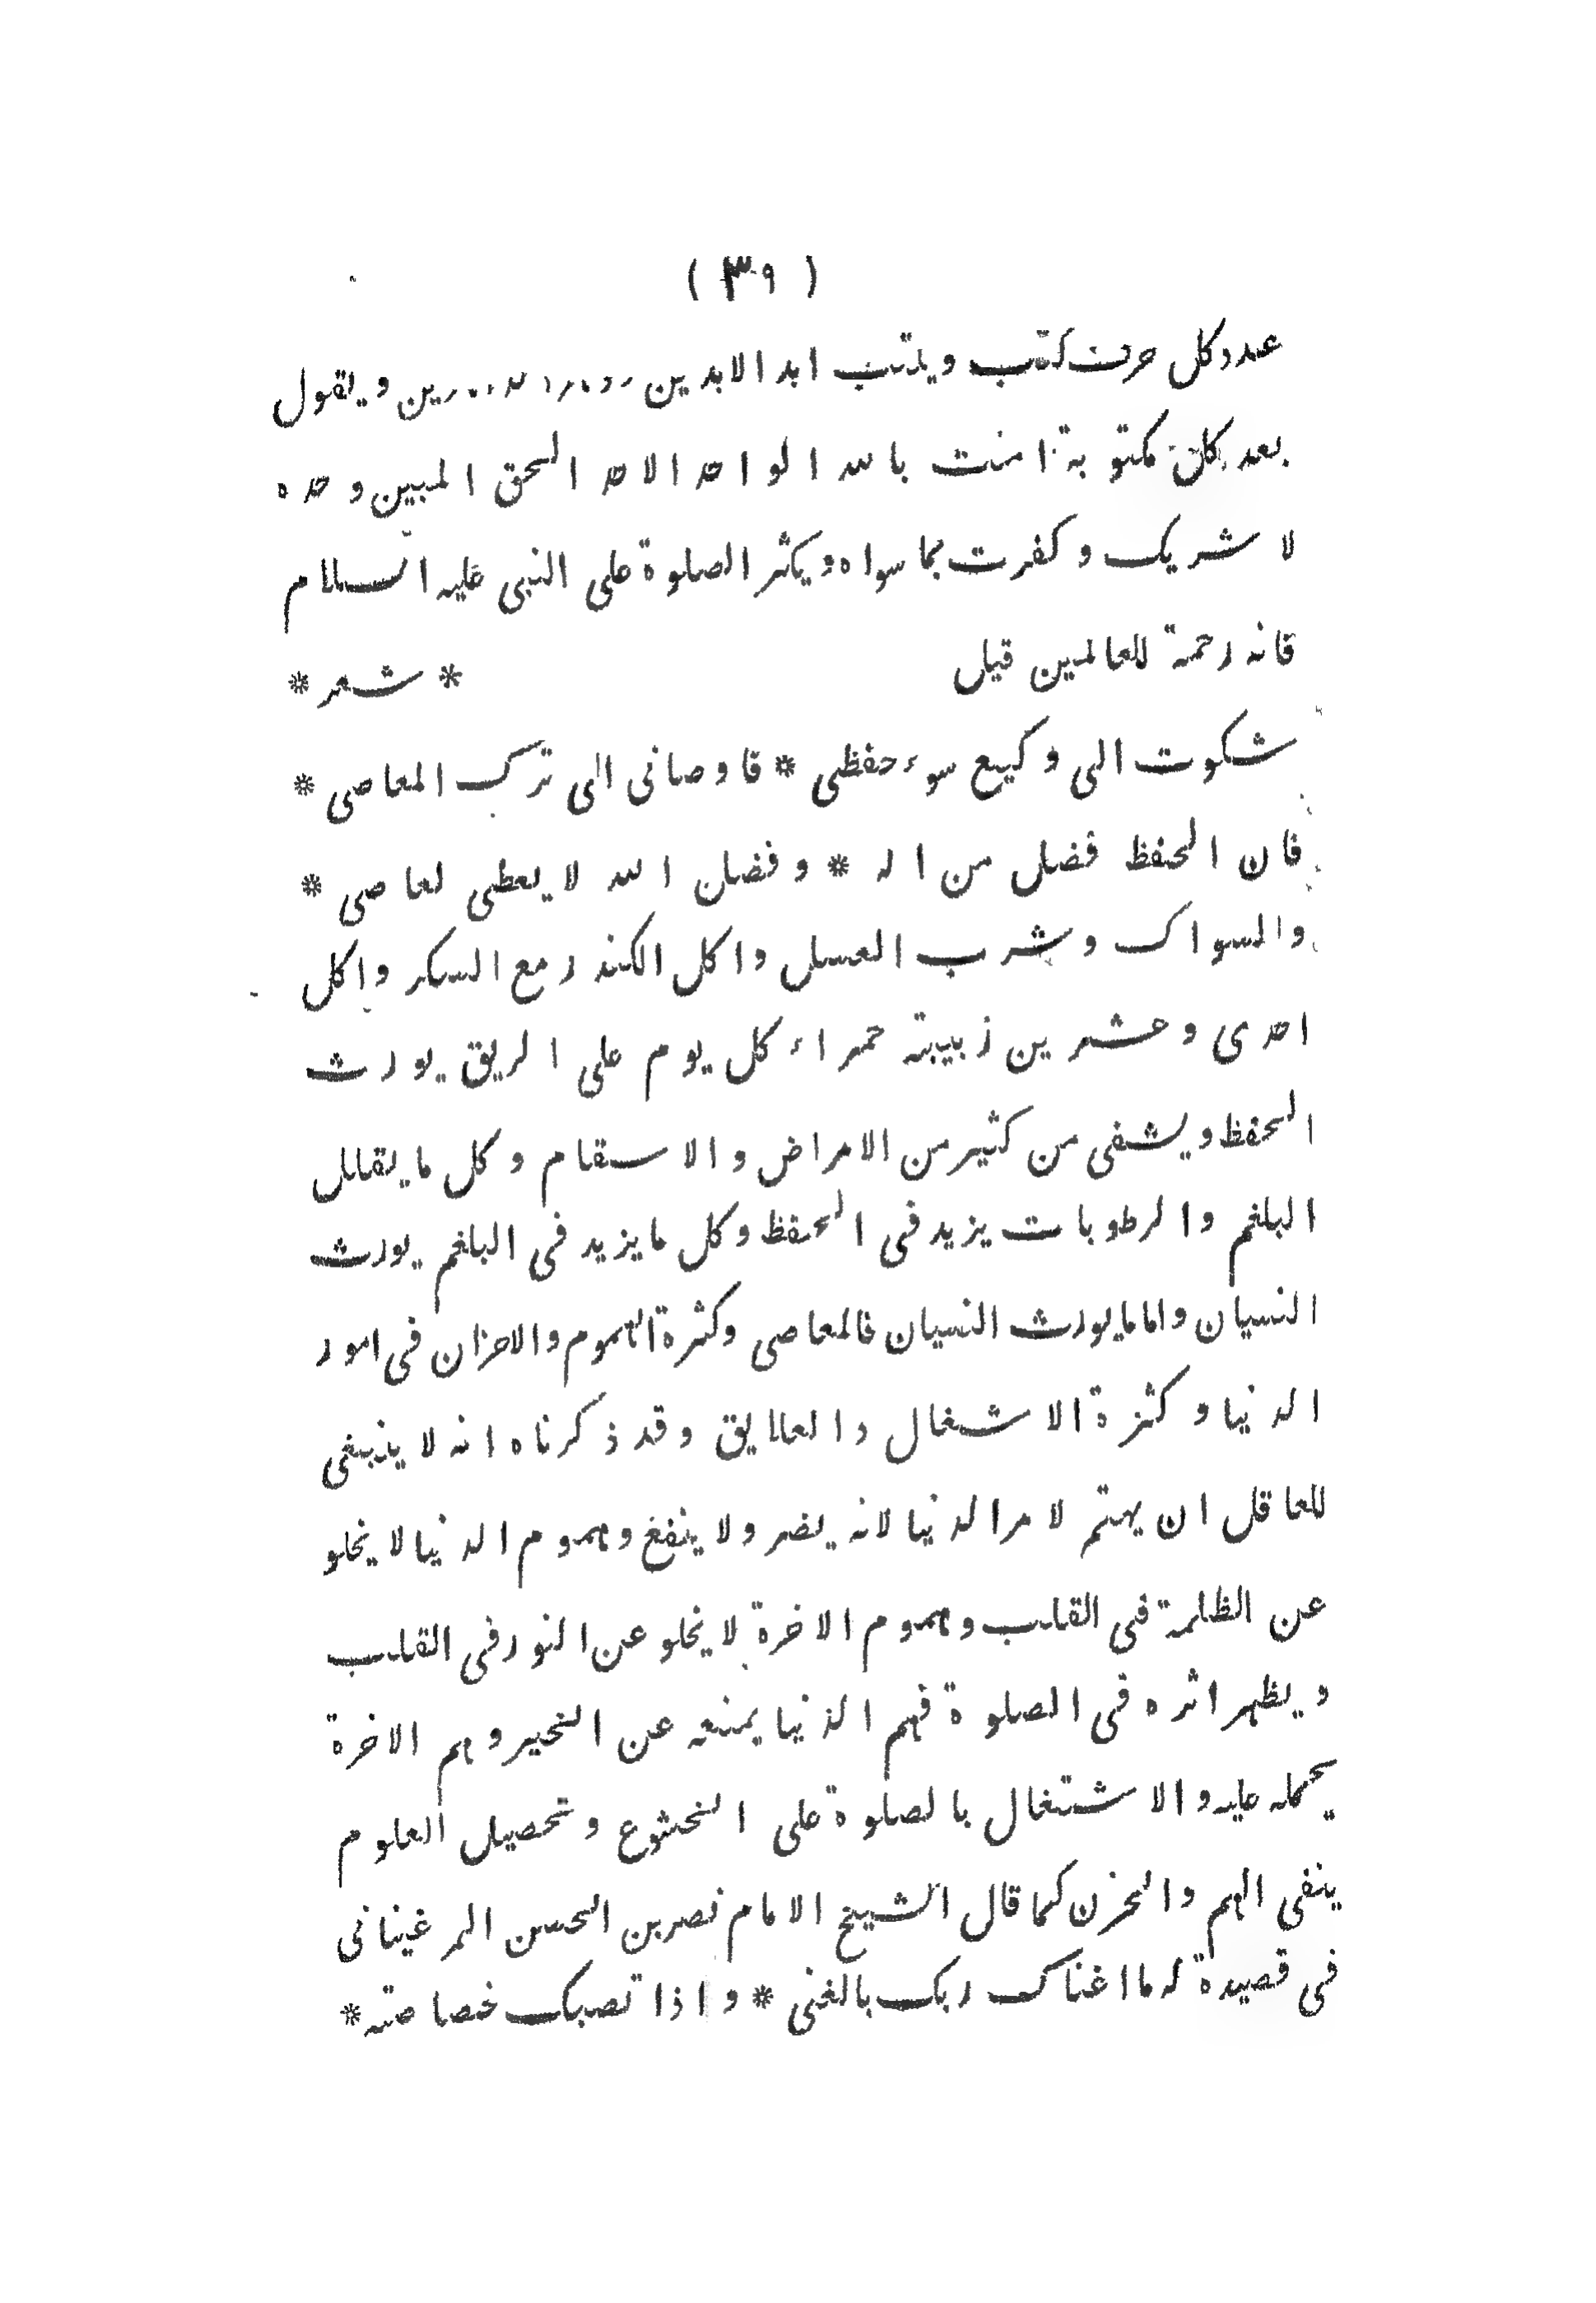 ( ٣٩ )
عدد كل حرف كتب ويكتب ابد الابدين ويقول
بعد كل مكتوبة امنت بالله الواحد الاحد الحق المبين وحده
لا شريك وكفرت بما سواه ويكثر الصلوة على النبي عليه السلام
فانه رحمة للعالمين قيل * شعر *
شكوت الى وكيع سوء حفظى * فاوصانى الى ترك المعاصى *
فان الحفظ فضل من اله * وفضل الله لا يعطى لعاصى *
والسواك وشرب العسل واكل الكندر مع السكر واكل
احدى وعشرين زبيبة حمراء كل يوم على الريق يورث
الحفظ ويشفى من كثير من الامراض والاسقام وكل ما يقلل
البلغم والرطوبات يزيد فى الحفظ وكل ما يزيد فى البلغم يورث
النسيان واما ما يورث النسيان فالمعاصى وكثرة الهموم والاحزان فى امور
الدنيا وكثرة الاشغال والعلايق وقد ذكرناه انه لا ينبغى
للعاقل ان يهتم لامر الدنيا لانه يضر ولا ينفغ وهموم الدنيا لا يخلو
عن الظلمة فى القلب وهموم الاخرة لا يخلو عن النور فى القلب
ويظهر اثره فى الصلوة فهم الدنيا يمنعه عن الخير وهم الاخرة
يحمله عليه والاشتغال بالصلوة على الخشوع وتحصيل العلوم
ينفى الهم والحزن كما قال الشيخ الامام نصر بن الحسن المرغينانى
فى قصيدة له ما اغناك ربك بالغنى * واذا تصبك خصاصته *